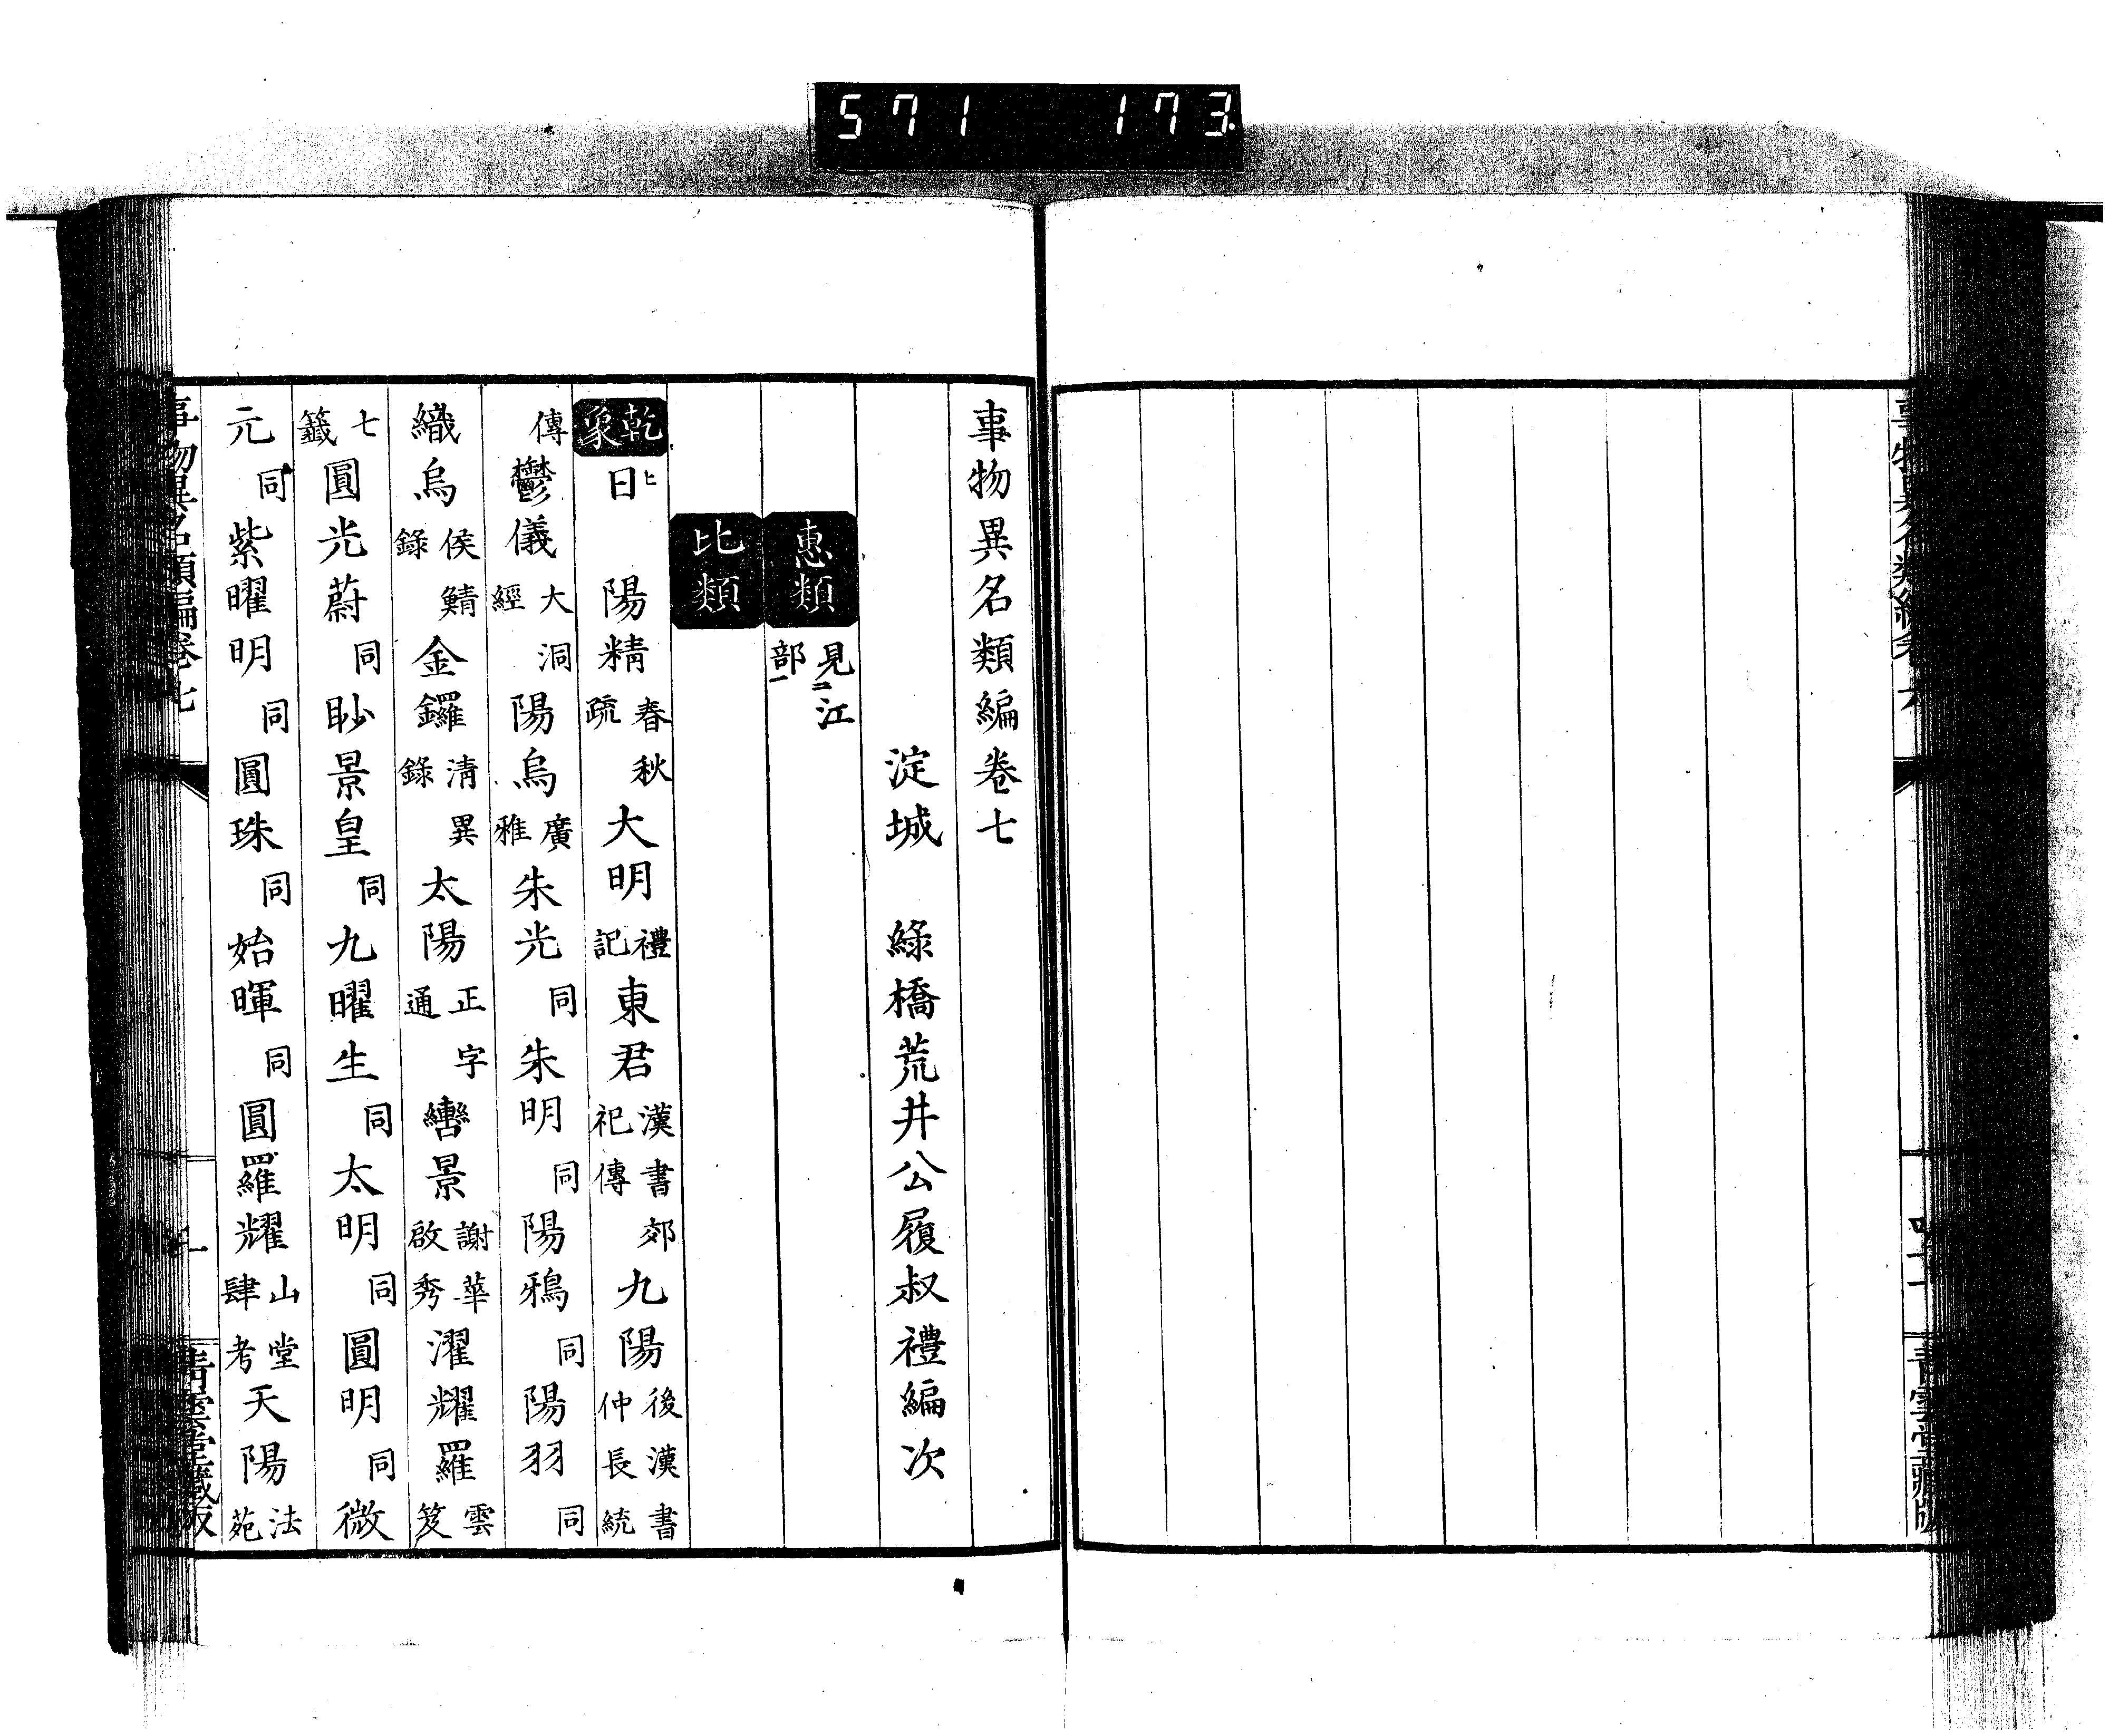 571 173
事物異名類編卷七
淀城 綠橋荒井公履叔禮編次
惠類 見二江部一
比類
乾象 日ヒ 陽精 春秋疏 大明 禮記 東君 漢書郊祀傳 九陽 後漢書仲長統
傳 鬱儀 大洞經 陽烏 廣雅 朱光 同 朱明 同 陽鴉 同 陽羽 同
織烏 侯鯖錄 金鑼 清異錄 太陽 正字通 轡景 謝華啟秀 濯耀羅 雲笈
七籤 圓光蔚 同 眇景皇 同 九曜生 同 太明 同 圓明 同 微
元 同 紫曜明 同 圓珠 同 始暉 同 圓羅耀 山堂肆考 天陽 法苑
事物異名類編卷七 一 青雲堂藏版